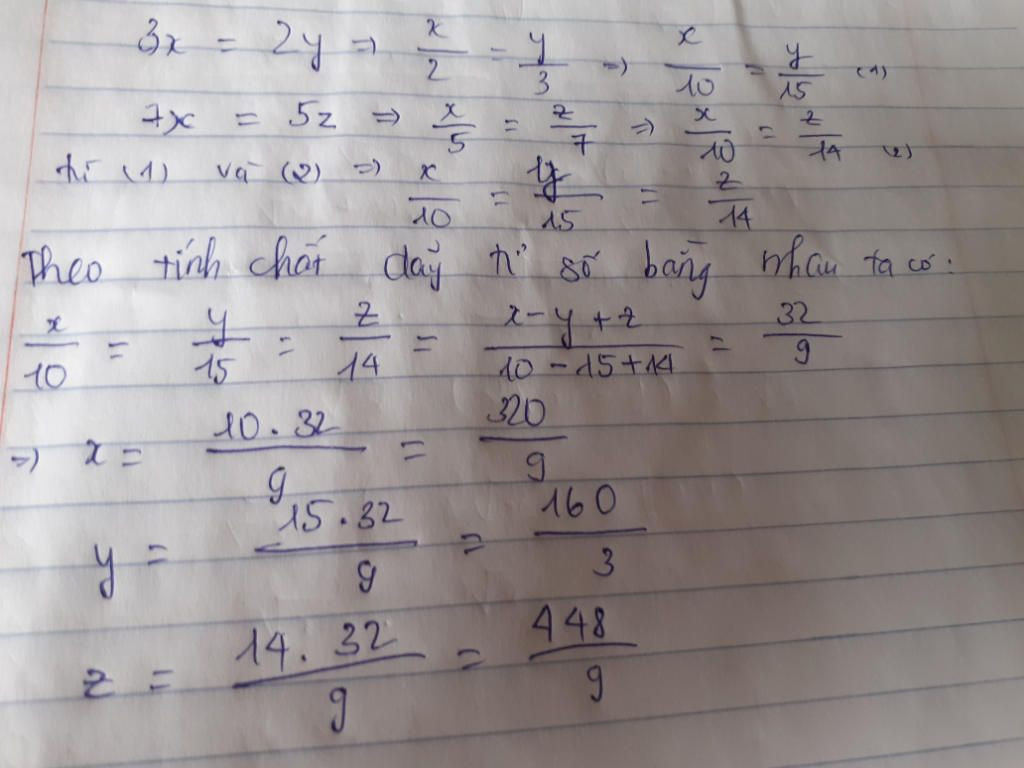 3x = 2y => x/2 = y/3 => x/10 = y/15 (1)
7x = 5z => x/5 = z/7 => x/10 = z/14 (2)
từ (1) và (2) => x/10 = y/15 = z/14
Theo tính chất dãy tỉ số bằng nhau ta có:
x/10 = y/15 = z/14 = x-y+z/10-15+14 = 32/9
=> x = 10.32/9 = 320/9
y = 15.32/9 = 160/3
z = 14.32/9 = 448/9